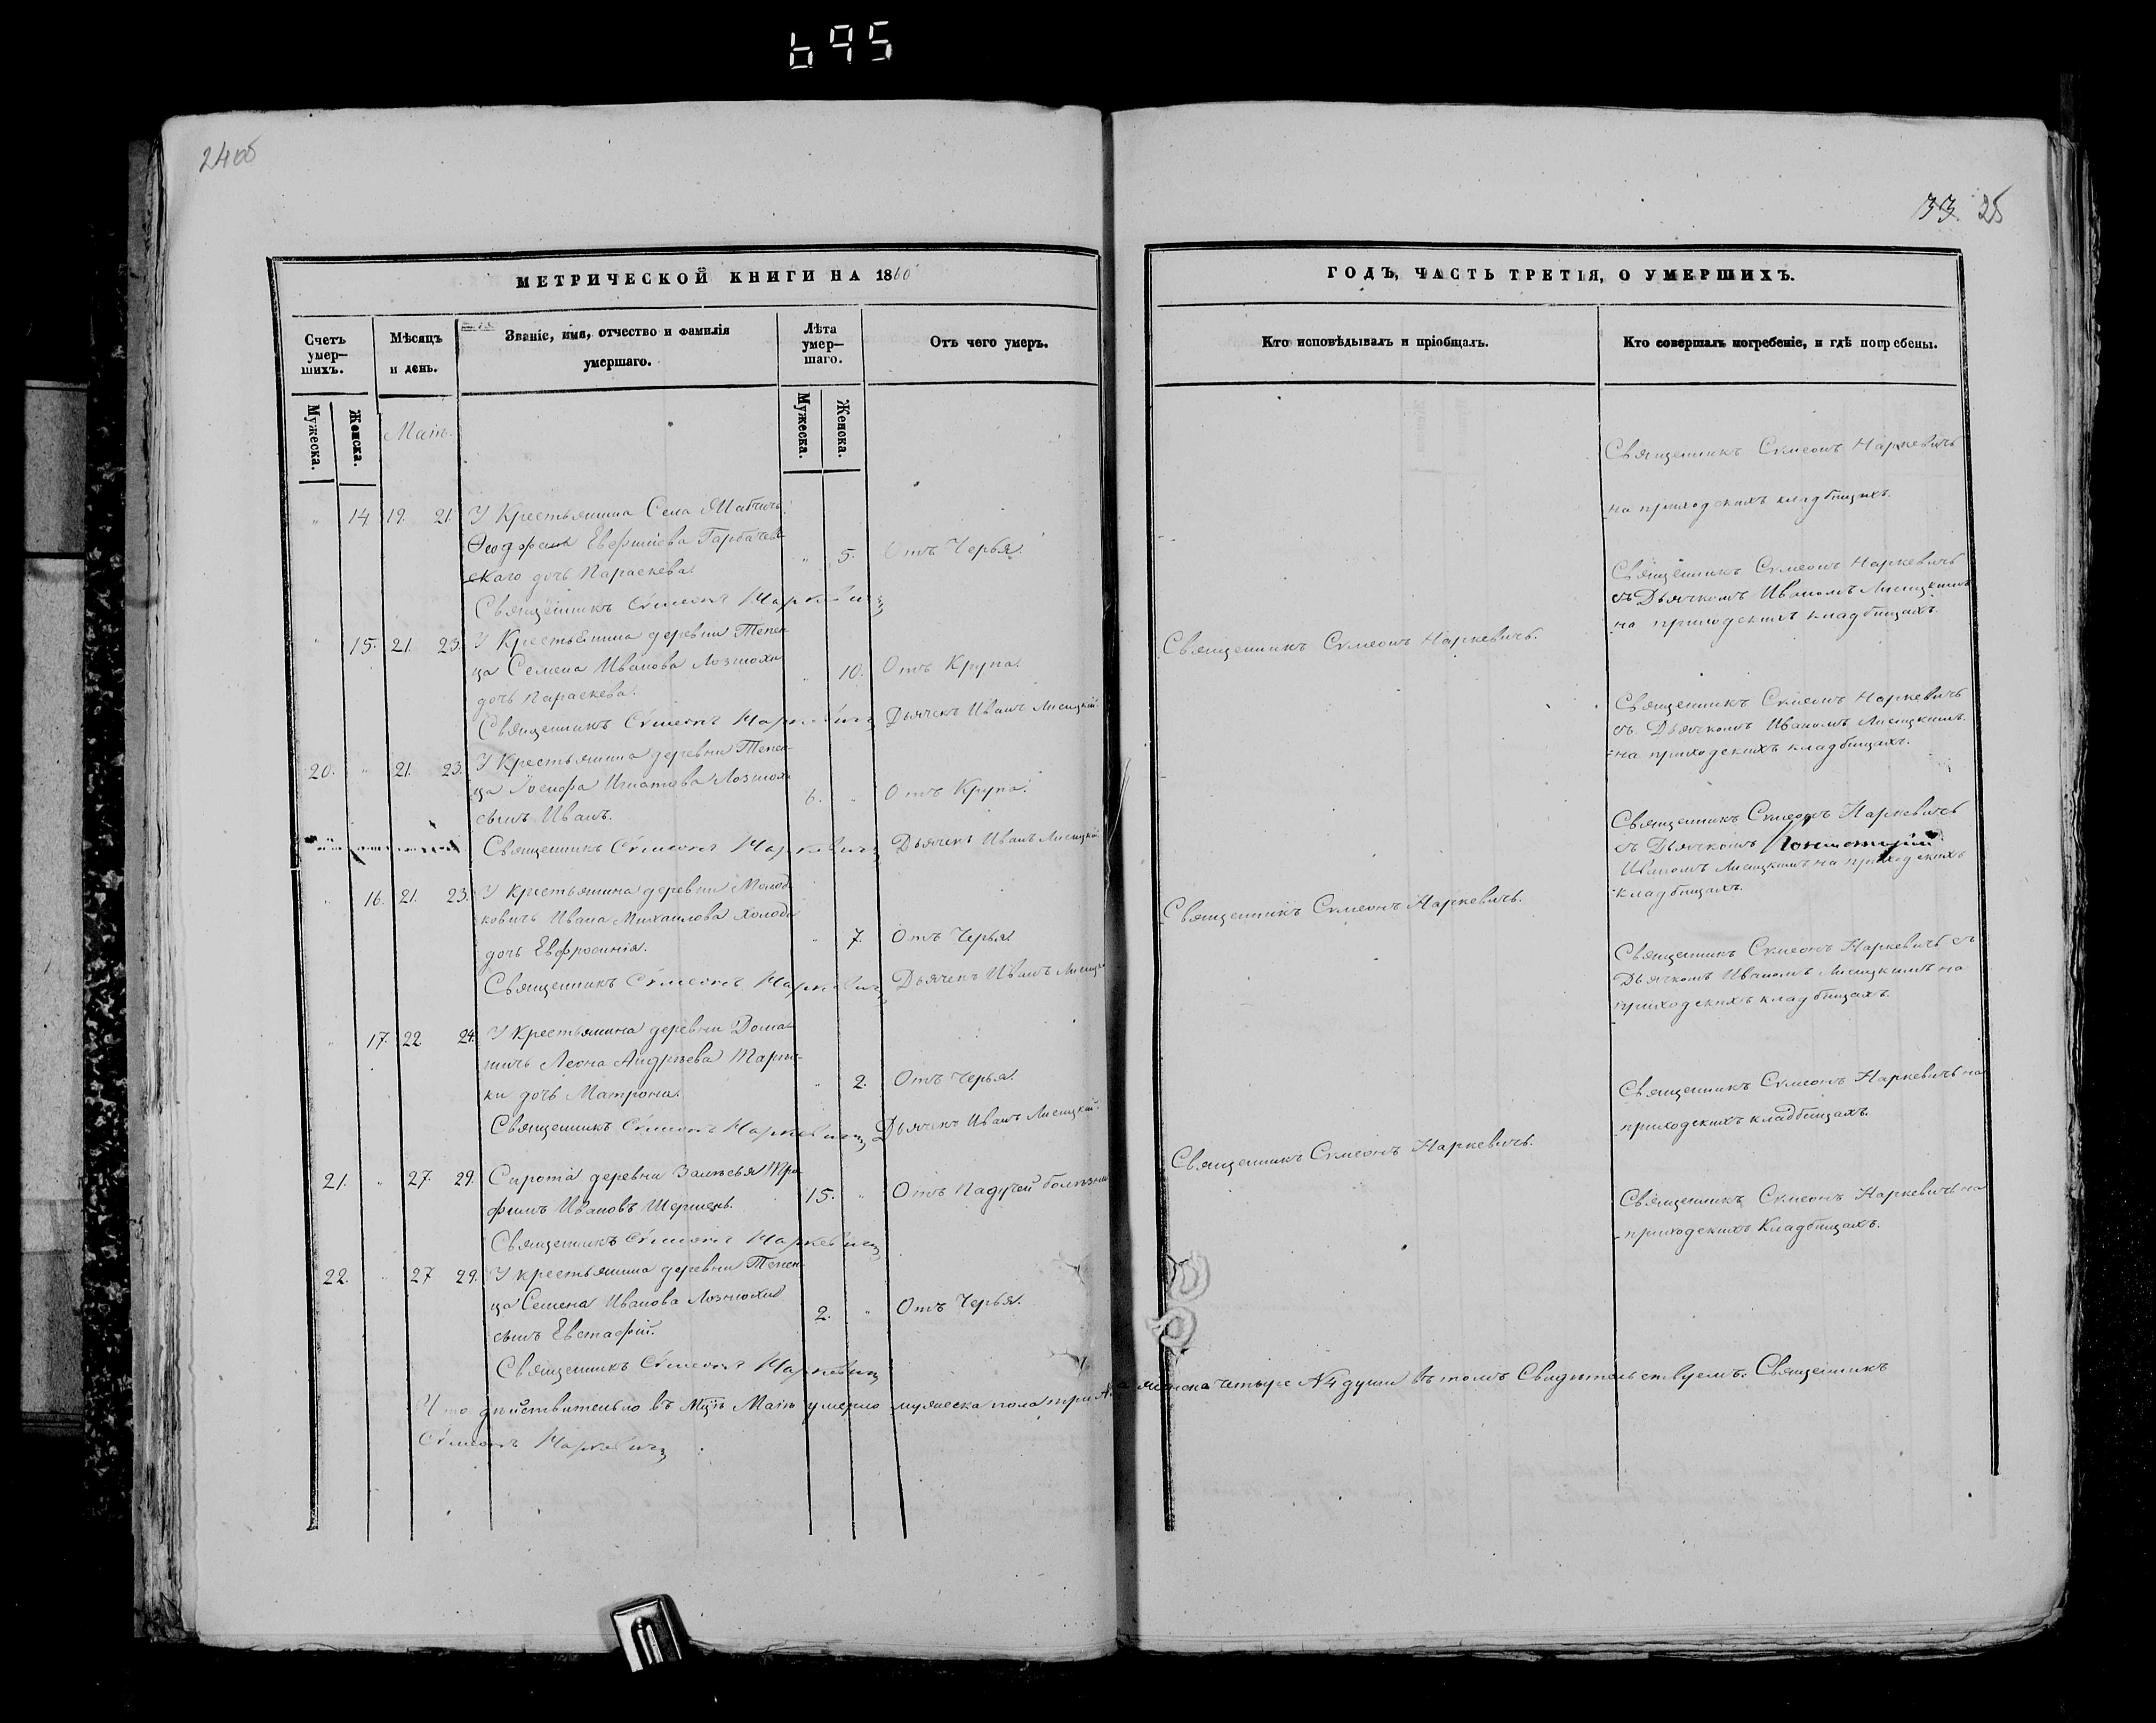 695
2406
33. 25
МЕТРИЧЕСКОЙ КНИГИ НА 1860
ГОДЪ, ЧАСТЬ ТРЕТІЯ, О УМЕРШИХЪ.
Счетъ умер-шихъ.
Мужеска.
Женска.
Мѣсяцъ и день.
Званіе, имя, отчество и фамилія умершаго.
Лѣта умер-шаго.
Мужеска.
Женска.
Отъ чего умеръ.
Кто исповѣдывалъ и пріобщалъ.
Кто совершалъ погребеніе, и гдѣ погребены.
Маія.
" 14 19. 21. У Крестьянина Села
Ѳеодора Евфиміева Гарбачев-
скаго дочь Параскева.
" 5. Отъ Червя.
Священникъ Сѵмеонъ Наркевичъ
Священникъ Сѵмеонъ Наркевичъ
на приходскихъ кладбищахъ.
" 15. 21. 23. У Крестьянина деревни Тепен-
ца Семена Иванова Лознюхи
дочь Параскева.
" 10. Отъ Крупа.
Священникъ Сѵмеонъ Наркевичъ
Дьячекъ Иванъ Лисицкій.
Священникъ Сѵмеонъ Наркевичъ.
Священникъ Сѵмеонъ Наркевичъ
съ Дьячкомъ Иваномъ Лисицкимъ
на приходскихъ кладбищахъ.
20. " 21. 23. У Крестьянина деревни Тепен-
ца Іосифа Игнатова Лознюх
сынъ Иванъ.
6. " Отъ Крупа.
Священникъ Сѵмеонъ Наркевичъ
Дьячекъ Иванъ Лисицкій.
Священникъ Сѵмеонъ Наркевичъ
съ Дьячкомъ Иваномъ Лисицкимъ.
на приходскихъ кладбищахъ.
" 16. 21. 23. У Крестьянина деревни Молод-
ковичъ Ивана Михаилова Холода
дочь Евфросинія.
" 7. Отъ Червя.
Священникъ Сѵмеонъ Наркевичъ
Дьячекъ Иванъ Лисицк
Священникъ Сѵмеонъ Наркевичъ.
Священникъ Сѵмеонъ Наркевичъ
съ Дьячкомъ
Иваномъ Лисицкимъ на приходскихъ
кладбищахъ.
" 17. 22 24. У Крестьянина деревни Дома-
ничъ Леона Андреева
ки дочь Матрона.
" 2. Отъ Червя.
Священникъ Сѵмеонъ Наркевичъ
Дьячекъ Иванъ Лисицкій.
Священникъ Сѵмеонъ Наркевичъ съ
Дьячкомъ Иваномъ Лисицкимъ на
приходскихъ кладбищахъ.
21. " 27. 29. Сирота деревни Залѣсья Тро-
фимъ Ивановъ
15. " Отъ Падучей болѣзни
Священникъ Сѵмеонъ Наркевичъ
Священникъ Сѵмеонъ Наркевичъ.
Священникъ Сѵмеонъ Наркевичъ на
приходскихъ кладбищахъ.
22. " 27 29. У крестьянина деревни Тепен-
ца Семена Иванова Лознюхи
сынъ Евстафій.
2. " Отъ Червя.
Священникъ Сѵмеонъ Наркевичъ
Священникъ Сѵмеонъ Наркевичъ на
приходскихъ Кладбищахъ.
Что дѣйствительно въ Мцѣ Маіѣ умерло мужеска пола три а женска четыре №4 души въ томъ Свидѣтельствуемъ. Священникъ
Сѵмеонъ Наркевичъ